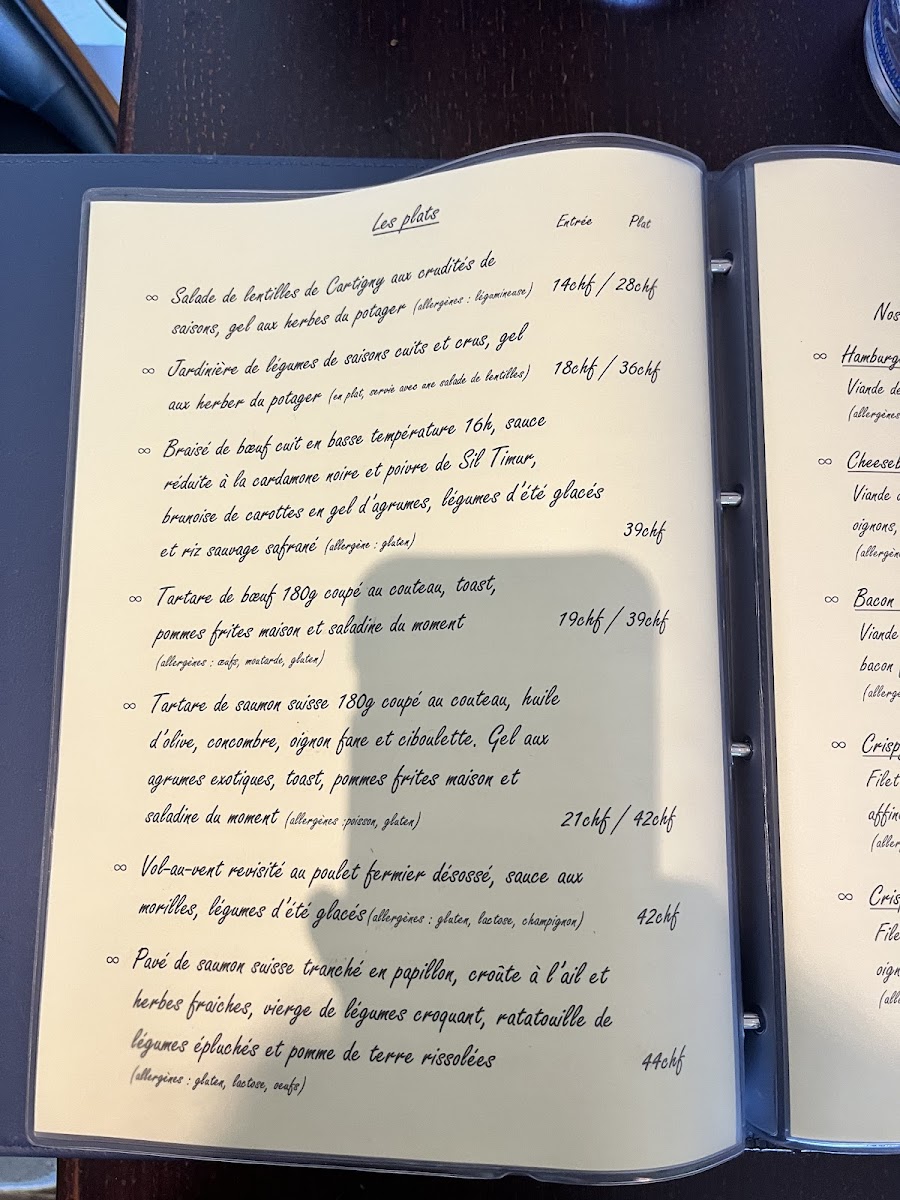 Les plats
Entrée Plat
∞ Salade de lentilles de Cartigny aux crudités de
saisons, gel aux herbes du potager (allergènes : légumineuse) 14chf / 28chf
∞ Jardinière de légumes de saisons cuits et crus, gel
aux herber du potager (en plat, servie avec une salade de lentilles) 18chf / 36chf
∞ Braisé de bœuf cuit en basse température 16h, sauce
réduite à la cardamone noire et poivre de Sil Timur,
brunoise de carottes en gel d'agrumes, légumes d'été glacés
et riz sauvage safrané (allergène : gluten) 39chf
∞ Tartare de bœuf 180g coupé au couteau, toast,
pommes frites maison et saladine du moment 19chf / 39chf
(allergènes : œufs, moutarde, gluten)
∞ Tartare de saumon suisse 180g coupé au couteau, huile
d'olive, concombre, oignon fane et ciboulette. Gel aux
agrumes exotiques, toast, pommes frites maison et
saladine du moment (allergènes :poisson, gluten) 21chf / 42chf
∞ Vol-au-vent revisité au poulet fermier désossé, sauce aux
morilles, légumes d'été glacés(allergènes : gluten, lactose, champignon) 42chf
∞ Pavé de saumon suisse tranché en papillon, croûte à l'ail et
herbes fraiches, vierge de légumes croquant, ratatouille de
légumes épluchés et pomme de terre rissolées 44chf
(allergènes : gluten, lactose, oeufs)
Nos
∞ Hamburg
Viande de
(allergènes
∞ Cheeseb
Viande
oignons,
(allergèn
∞ Bacon
Viande
bacon
(allerg
∞ Crisp
Filet
affin
(aller
∞ Cris
File
oign
(all